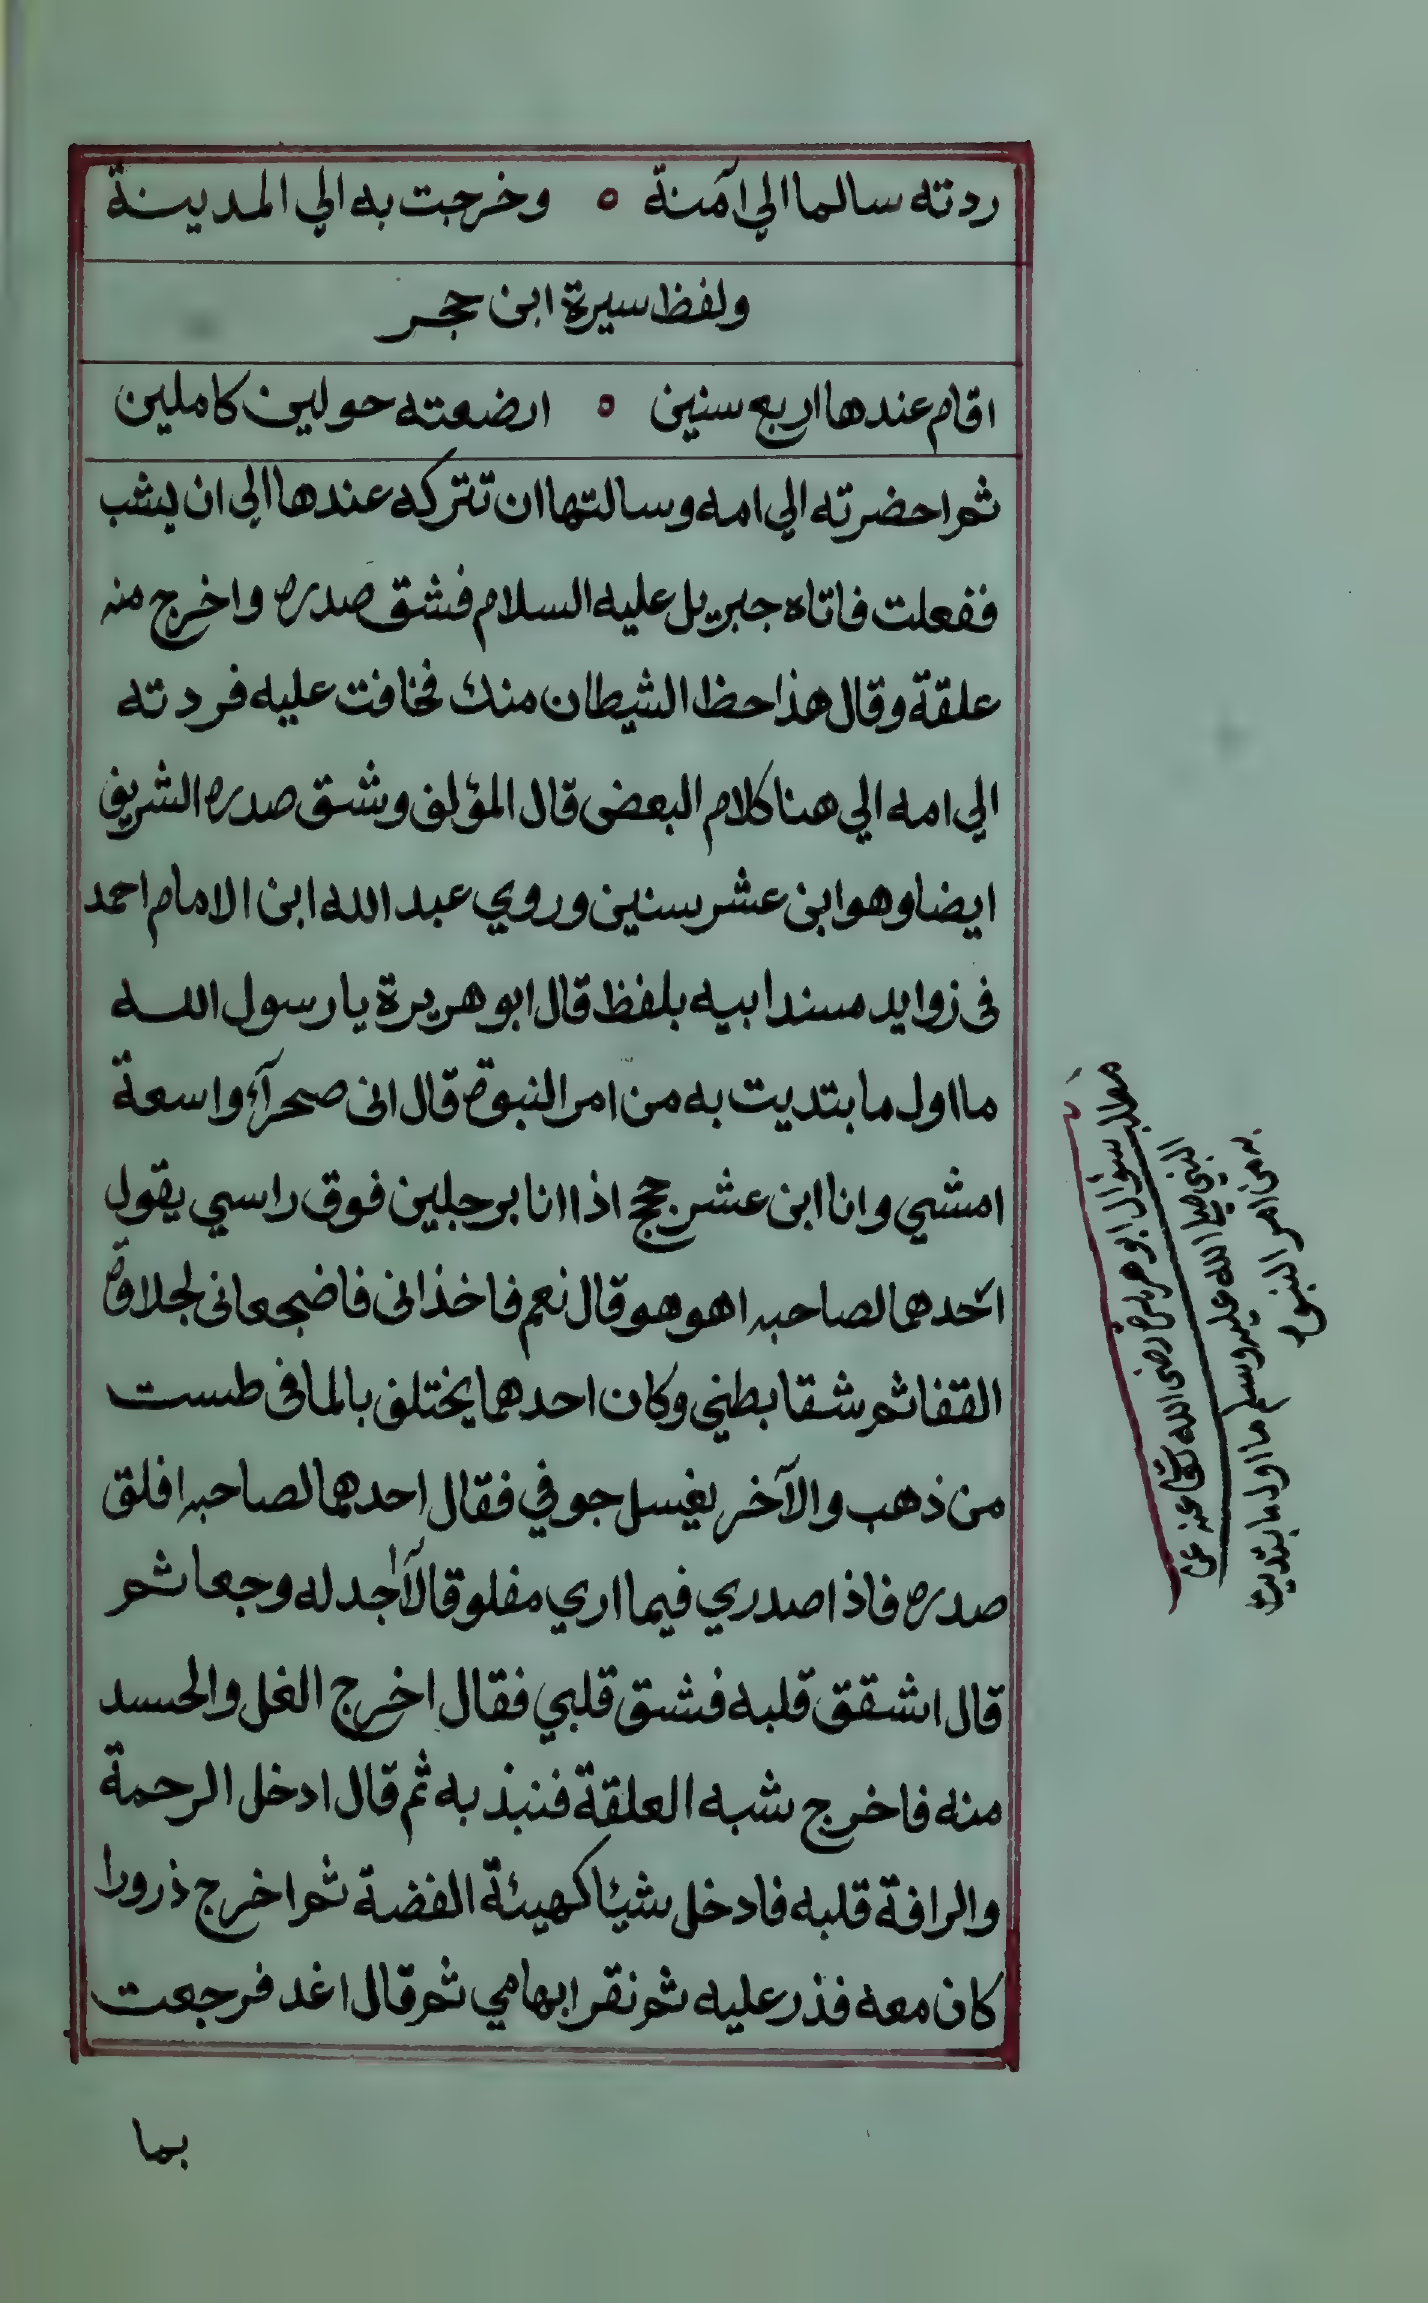 ردته سالما الي آمنة ه وخرجت به الي المدينة
ولفظ سيرة ابن حجر
اقام عندها اربع سنين ه ارضعته حولين كاملين
ثم احضرته الي امه وسالتها ان تتركه عندها الي ان يشب
ففعلت فاتاه جبريل عليه السلام فشق صدره واخرج منه
علقة وقال هذا حظ الشيطان منك فخافت عليه فردته
الي امه الي هنا كلام البعض قال المؤلف وشق صدره الشريف
ايضا وهو ابن عشر سنين وروي عبد الله ابن الامام احمد
في زوايد مسند ابيه بلفظ قال ابو هريرة يا رسول الله
ما اول ما بتديت به من امر النبوة قال اني صحرآء واسعة
امشي وانا ابن عشر حجج اذا انا برجلين فوق راسي يقول
احدهما لصاحبه اهو هو قال نعم فاخذاني فاضجعاني لحلاوة
القفا ثم شقا بطني وكان احدهما يختلف بالما في طست
من ذهب والآخر يغسل جوفي فقال احدهما لصاحبه افلق
صدره فاذا صدري فيما اري مفلوقا لآ اجد له وجعا ثم
قال اشقق قلبه فشق قلبي فقال اخرج الغل والحسد
منه فاخرج شبه العلقة فنبذ به ثم قال ادخل الرحمة
والرافة قلبه فادخل شيئا كهيئة الفضة ثم اخرج ذرورا
كان معه فذر عليه ثم نقر ابهامي ثم قال اغد فرجعت
بما
سؤال ابو هريرة رضي الله تعا عنه عن
النبي صلي الله عليه وسلم ما اول ما بتديت
به من امر النبوة